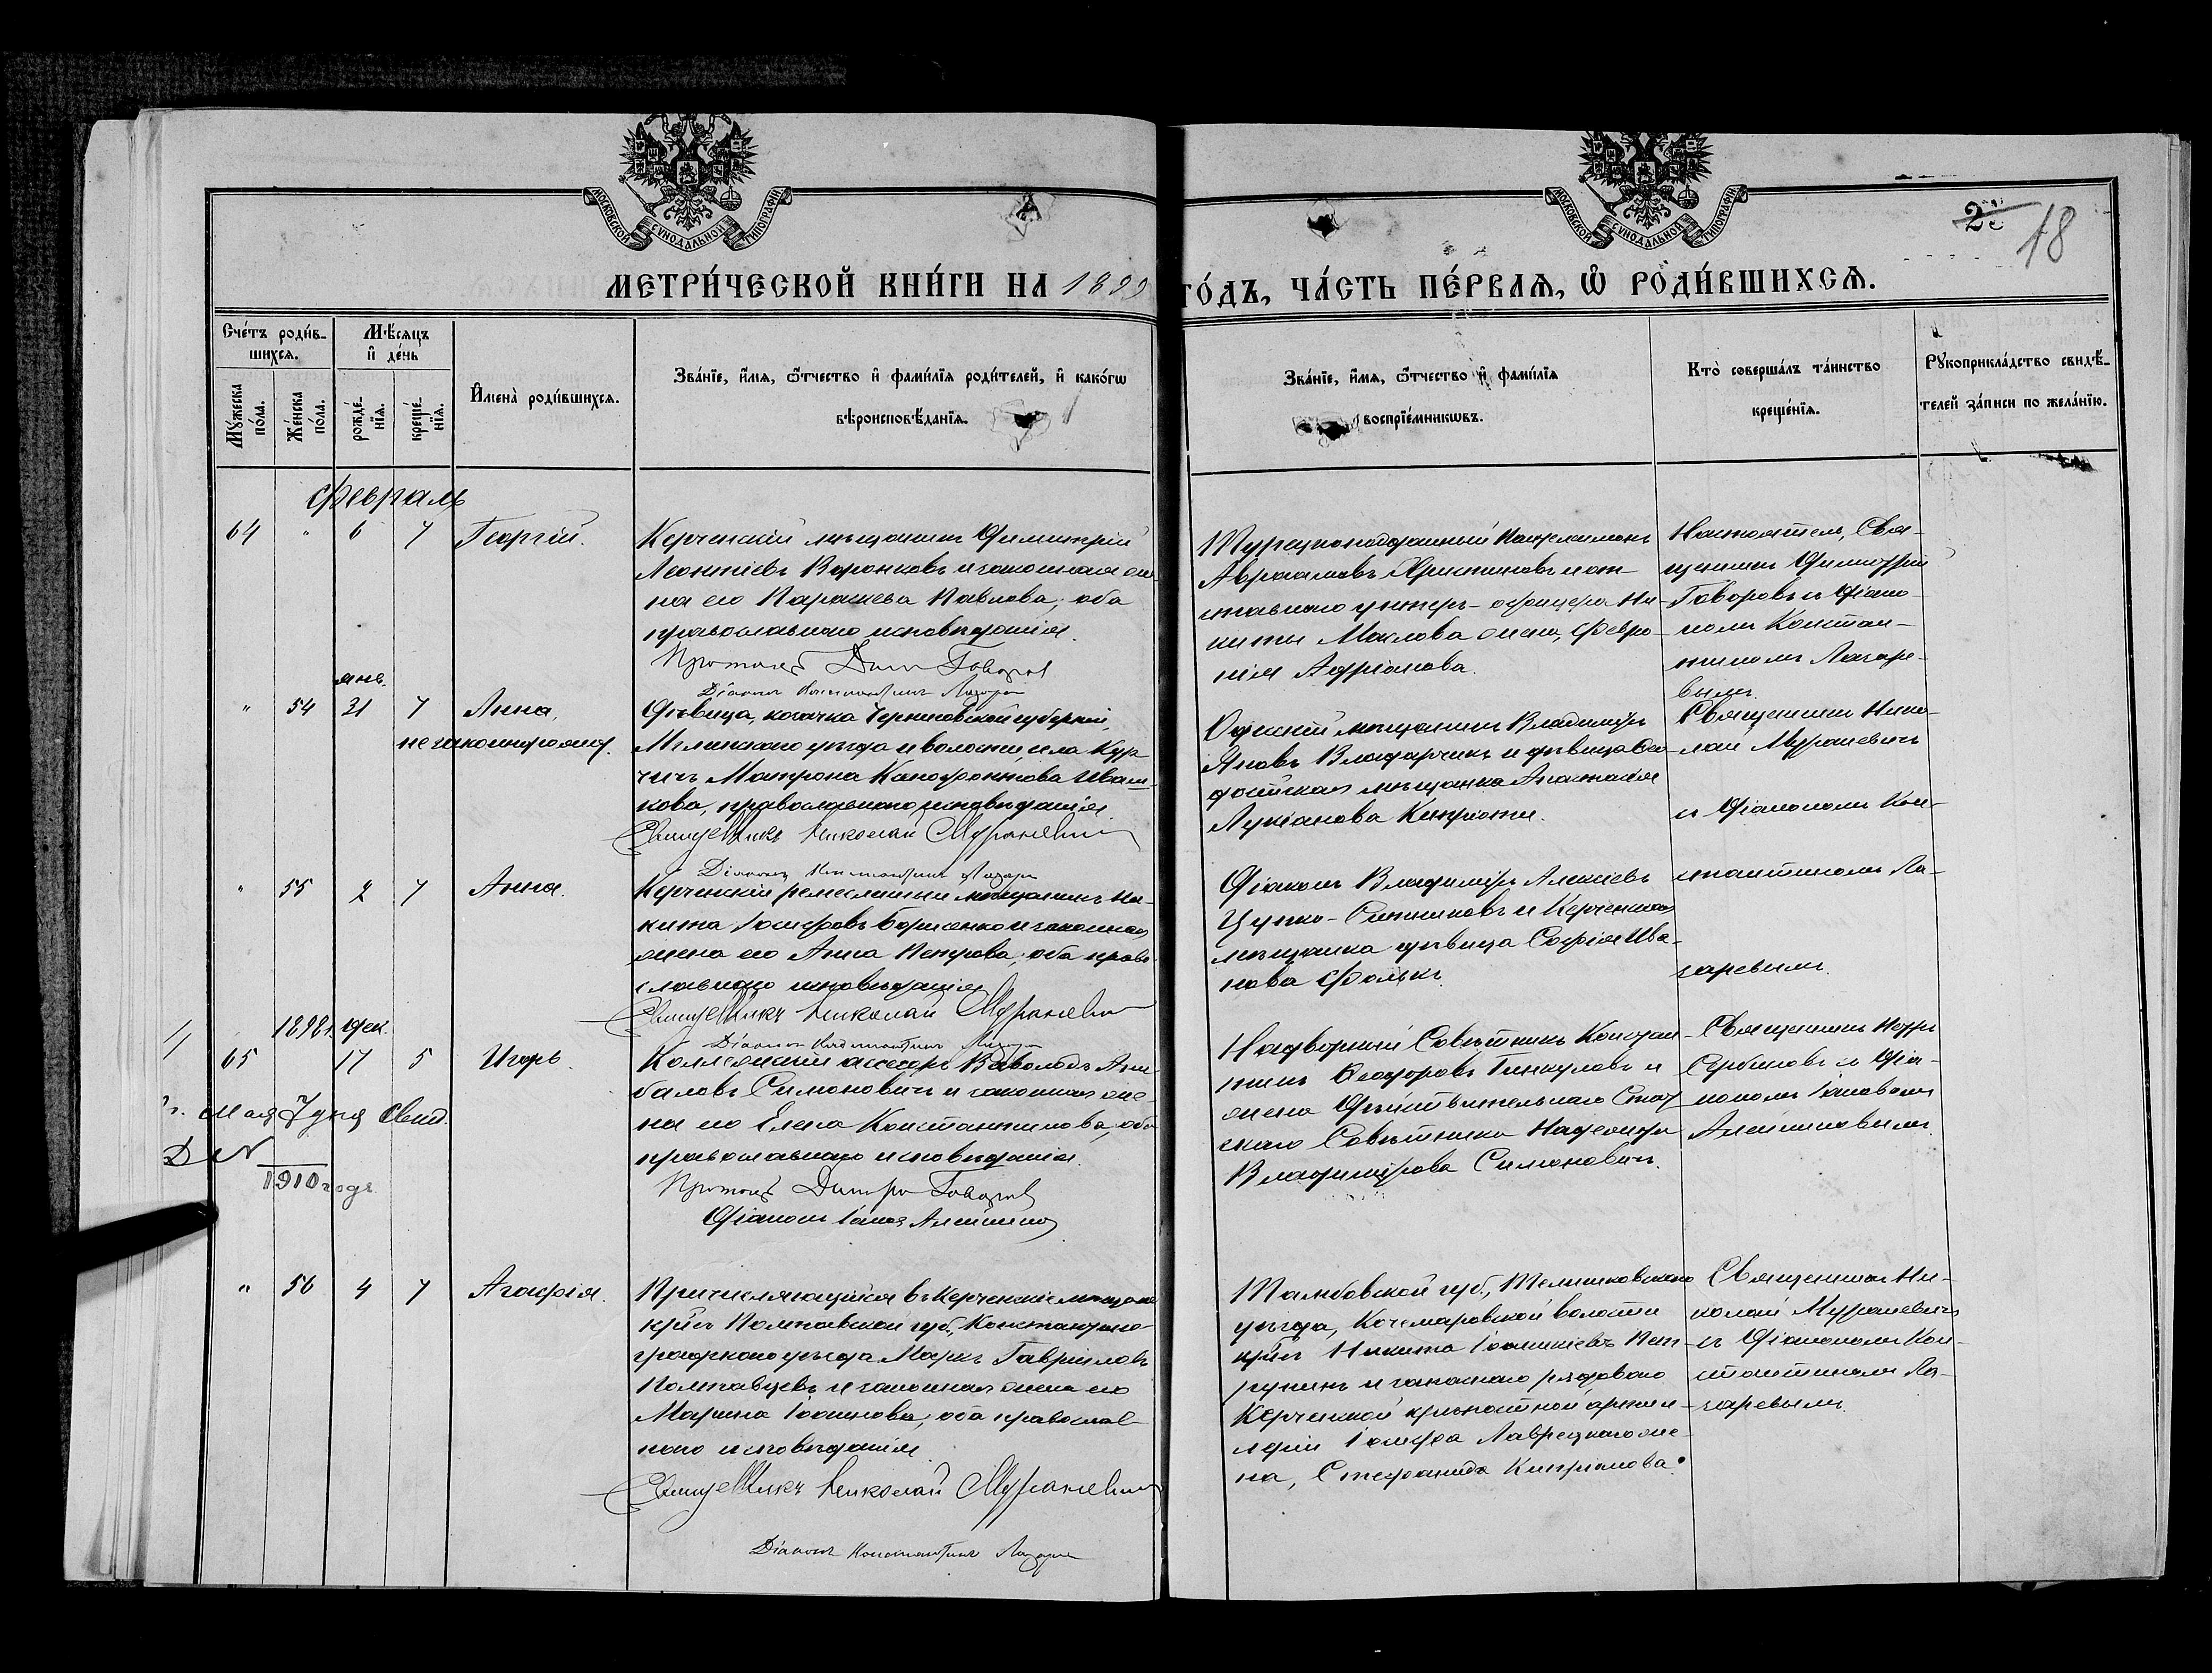 МОСКОВСКОЙ СѴНОДАЛЬНОЙ ТИПОГРАФІИ
МОСКОВСКОЙ СѴНОДАЛЬНОЙ ТИПОГРАФІИ
18
МЕТРИ́ЧЕСКОЙ КНИ́ГИ НА 1899 ГО́ДЪ, ЧА́СТЬ ПЕ́РВАЯ, Ѡ҆ РОДИ́ВШИХСЯ.
Сче́тъ роди́в-
шихся.
Мѣ́сяцъ
и҆ де́нь
Мꙋ́жеска по́ла.
Же́нска по́ла.
рожде́-
нїя.
креще́-
нїя.
И҆мена̀ роди́вшихся.
Зва́нїе, и҆́мя, ѻ҆́тчество и҆ фами́лїя роди́телей, и҆ како́гѡ
вѣроисповѣ́данїя.
Зва́нїе, и҆́мя, ѻ҆́тчество и҆ фами́лїя
воспрїе́мникѡвъ.
Кто̀ соверша́лъ та́инство
креще́нїя.
Рꙋкоприкла́дство свидѣ́-
телей за́писи по жела́нїю.
Февраль
64 " 6 7 Георгій.
Керченскій мѣщанинъ Димитрій
Леонтіевъ Воронковъ и законная же-
на его Параскева Павлова, оба
православнаго исповѣданія.
Протоіер Дим Говоров
Діаконъ Константинъ Лазаре
Турецкоподданный Пантелеимонъ
Авраамовъ Христиновъ и от-
ставного унтеръ-офицера Ни-
киты Маслова жена, Февро-
нія Адріанова.
Настоятель, Свя-
щенникъ Димитрій
Говоровъ и Діако-
номъ Констан-
тиномъ Лазаре-
вымъ.
янв.
" 54 31 7 Анна,
незаконнорожд.
Дѣвица, козачка Черниговской губерніи,
Мглинскаго уѣзда и волости, села Кур-
чичъ Матрона Ксенофонтова Иваш-
кова, православнаго исповѣданія.
Священникъ Николай Мураневич
Діаконъ Константинъ Лазаре
Одесскій мѣщанинъ Владиміръ
Яковъ Владарчикъ и дѣвица Ѳео-
досійская мѣщанка Анастасія
Лукіанова Кипріоти.
Священникъ Нико-
лай Мураневичъ
и Діакономъ Кон-
стантиномъ Ла-
заревымъ.
" 55 2 7 Анна.
Керченскій ремесленный мѣщанинъ Ни-
кита Іосифовъ Борисенко и законная
жена его Анна Петрова, оба право-
славнаго исповѣданія
Священникъ Николай Мураневич
Діаконъ Константинъ Лазаре
Діаконъ Владиміръ Алексіевъ
Цупко-Ситниковъ и Керченская
мѣщанка дѣвица Софія Ива-
нова Фолькъ.
1898 г. дек.
65 17 5 Игорь.
Коллежскій ассесоръ Всеволодъ Ани-
баловъ Симоновичъ и законная же-
на его Елена Константинова, оба
православнаго исповѣданія.
Протоіер Димтри Говоров
Діаконъ Іаковъ Алейников
Надворный Совѣтникъ Констан-
тинъ Ѳеодоровъ Гинкуловъ и
жена Дѣйствительнаго Стат-
скаго Совѣтника Надежда
Владимірова Симоновичъ.
Священникъ Петръ
Сербиновъ и Діа-
кономъ Іаковомъ
Алейниковымъ.
мая 7 дня свид.
Д №
1910 годъ
" 56 4 7 Агафія.
Причисляющійся въ Керченскіе мѣщане
кр-нъ Полтавской губ., Константино-
градскаго уѣзда Маркъ Гавріиловъ
Полтавцевъ и законная жена его
Марина Іоаннова, оба православ-
наго исповѣданія.
Священникъ Николай Мураневич
Діаконъ Константинъ Лазаре
Тамбовской губ., Темниковскаго
уѣзда, Кочемаровской волости
кр-нъ Никита Іоанникіевъ Пет-
рунинъ и запаснаго рядового
Керченской крѣпостной артил-
леріи Іосифа Лаврецкаго же-
на, Стефанида Кипріанова.
Священникъ Ни-
колай Мураневичъ
и Діакономъ Кон-
стантиномъ Ла-
заревымъ.